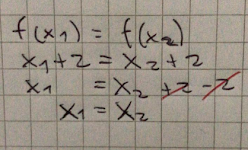 f(x₁) = f(x₂)
x₁ + 2 = x₂ + 2
x₁ = x₂ + 2 - 2
x₁ = x₂